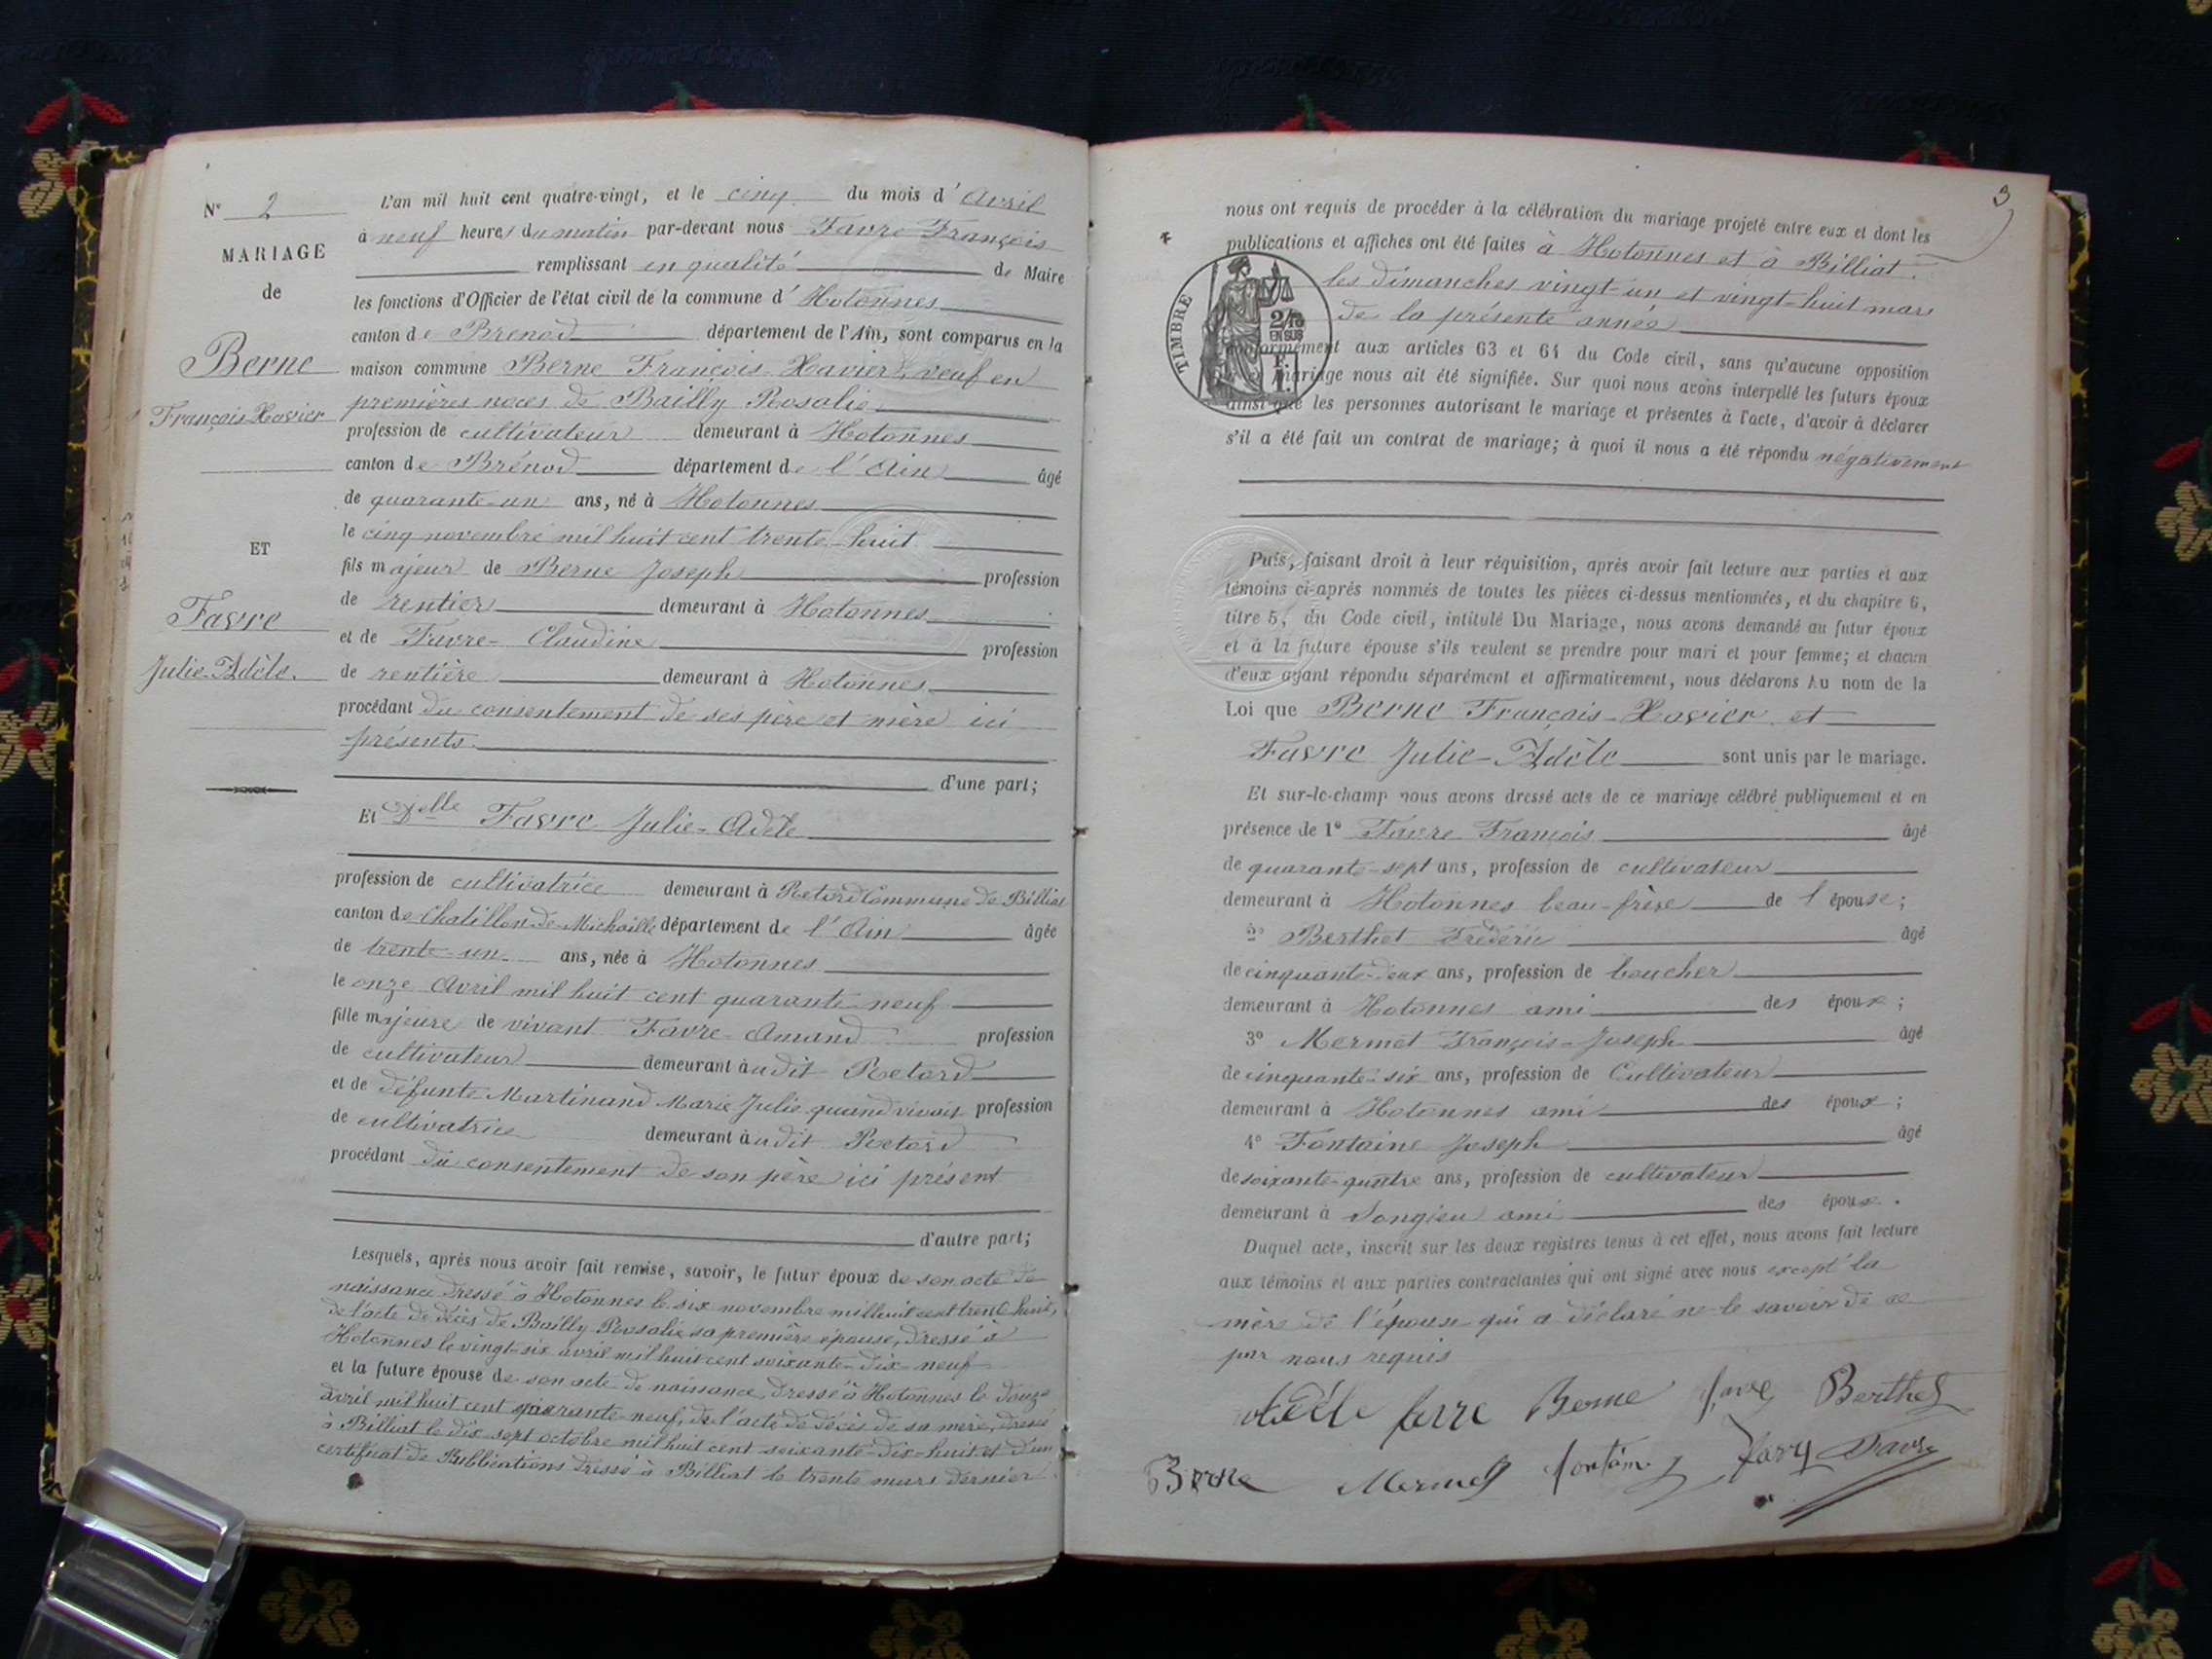 N° 2
MARIAGE
de
Berne
François Xavier
ET
Favre
Julie-Adèle.
L'an mil huit cent quatre-vingt, et le cinq du mois d'Avril
à neuf heures du matin par-devant nous Favre François
remplissant en qualité de Maire
les fonctions d'Officier de l'état civil de la commune d'Hotonnes
canton de Brenod département de l'Ain, sont comparus en la
maison commune Berne François-Xavier, veuf en
premières noces de Bailly Rosalie
profession de cultivateur demeurant à Hotonnes
canton de Brénod département de l'Ain âgé
de quarante-un ans, né à Hotonnes
le cinq novembre mil huit cent trente-huit
fils majeur de Berne Joseph profession
de rentier demeurant à Hotonnes
et de Favre-Claudine profession
de rentière demeurant à Hotonnes
procédant du consentement de ses père et mère ici
présents
d'une part;
Et Delle Favre Julie-Adèle
profession de cultivatrice demeurant à Retord Commune de Billiat
canton de Chatillon-de-Michaille département de l'Ain âgée
de trente-un ans, née à Hotonnes
le onze Avril mil huit cent quarante-neuf
fille majeure de vivant Favre-Amand profession
de cultivateur demeurant audit Retord
et de défunte Martinand Marie Julie quand vivait profession
de cultivatrice demeurant audit Retord
procédant du consentement de son père ici présent
d'autre part;
Lesquels, après nous avoir fait remise, savoir, le futur époux de son acte de
naissance dressé à Hotonnes le six novembre mil huit cent trente huit,
de l'acte de décès de Bailly Rosalie sa première épouse, dressé à
Hotonnes le vingt-six avril mil huit cent soixante-dix-neuf
et la future épouse de son acte de naissance, dressé à Hotonnes le douze
avril mil huit cent quarante-neuf, de l'acte de décès de sa mère, dressé
à Billiat le dix sept octobre mil huit cent soixante-dix-huit et d'un
certificat de Publications dressé à Billiat le trente mars dernier
3
nous ont requis de procéder à la célébration du mariage projeté entre eux et dont les
publications et affiches ont été faites à Hotonnes et à Billiat.
les dimanches vingt-un et vingt-huit mars
de la présente année
TIMBRE
2/10
EN SUS
F.
1.
conformément aux articles 63 et 64 du Code civil, sans qu'aucune opposition
mariage nous ait été signifiée. Sur quoi nous avons interpellé les futurs époux
ainsi que les personnes autorisant le mariage et présentes à l'acte, d'avoir à déclarer
s'il a été fait un contrat de mariage; à quoi il nous a été répondu négativement
Puis, faisant droit à leur réquisition, après avoir fait lecture aux parties et aux
témoins ci-après nommés de toutes les pièces ci-dessus mentionnées, et du chapitre 6,
titre 5, du Code civil, intitulé Du Mariage, nous avons demandé au futur époux
et à la future épouse s'ils veulent se prendre pour mari et pour femme; et chacun
d'eux ayant répondu séparément et affirmativement, nous déclarons Au nom de la
Loi que Berne François-Xavier et
Favre Julie-Adèle sont unis par le mariage.
Et sur-le-champ nous avons dressé acte de ce mariage célébré publiquement et en
présence de 1° Favre François âgé
de quarante-sept ans, profession de cultivateur
demeurant à Hotonnes beau-frère de l'épouse;
2° Berthet Frédéric âgé
de cinquante-deux ans, profession de boucher
demeurant à Hotonnes ami des époux;
3° Mermet François-Joseph âgé
de cinquante-six ans, profession de Cultivateur
demeurant à Hotonnes ami des époux;
4° Fontaine Joseph âgé
de soixante-quatre ans, profession de cultivateur
demeurant à Songieu ami des époux.
Duquel acte, inscrit sur les deux registres tenus à cet effet, nous avons fait lecture
aux témoins et aux parties contractantes qui ont signé avec nous except la
mère de l'épouse qui a déclaré ne le savoir de ce
par nous requis
Berne Berthet
Berne Mermet Favre